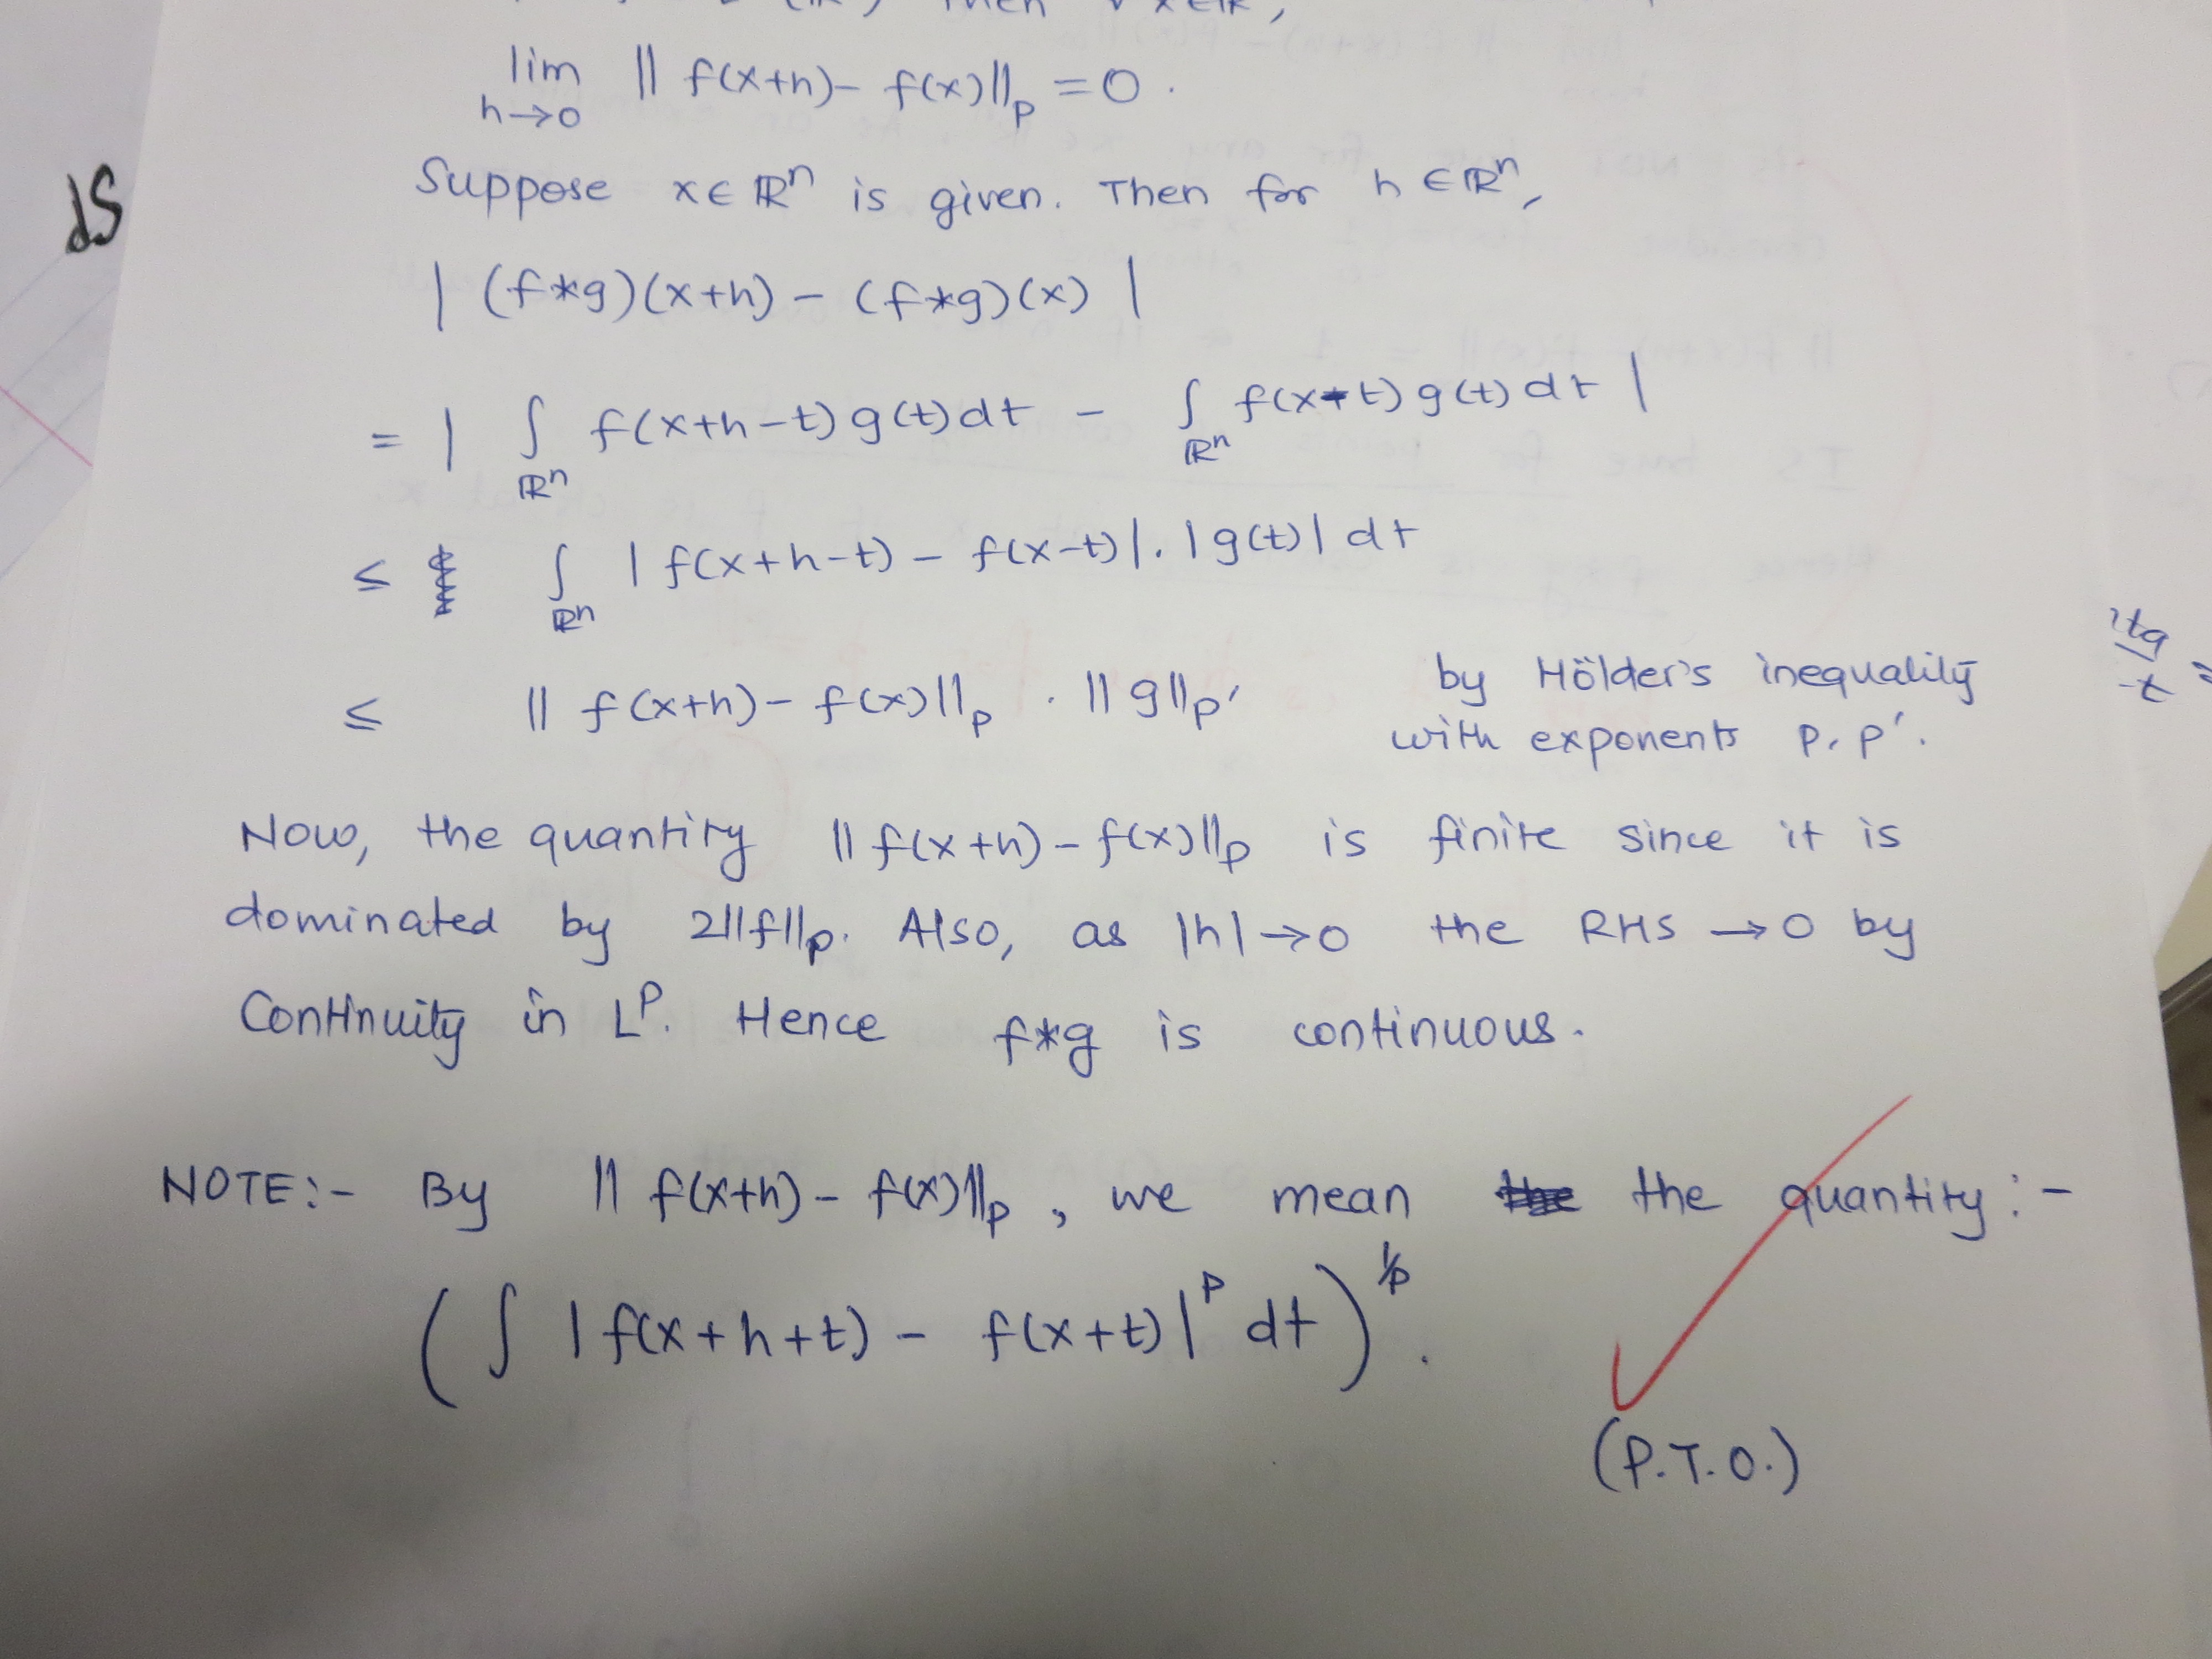 lim || f(x+h) - f(x)||_p = 0.
h→0
Suppose x∈ℝⁿ is given. Then for h∈ℝⁿ,
| (f*g)(x+h) - (f*g)(x) |
= | ∫_ℝⁿ f(x+h-t) g(t) dt - ∫_ℝⁿ f(x-t) g(t) dt |
≤ ∫_ℝⁿ | f(x+h-t) - f(x-t)|. |g(t)| dt
≤ || f(x+h) - f(x)||_p . ||g||_p' by Hölder's inequality
with exponents p, p'.
Now, the quantity || f(x+h) - f(x)||_p is finite since it is
dominated by 2||f||_p. Also, as |h|→0 the RHS →0 by
Continuity in L^p. Hence f*g is continuous.
NOTE:- By || f(x+h) - f(x)||_p, we mean the quantity:-
( ∫ | f(x+h+t) - f(x+t)|^p dt )^1/p .
(P.T.O.)